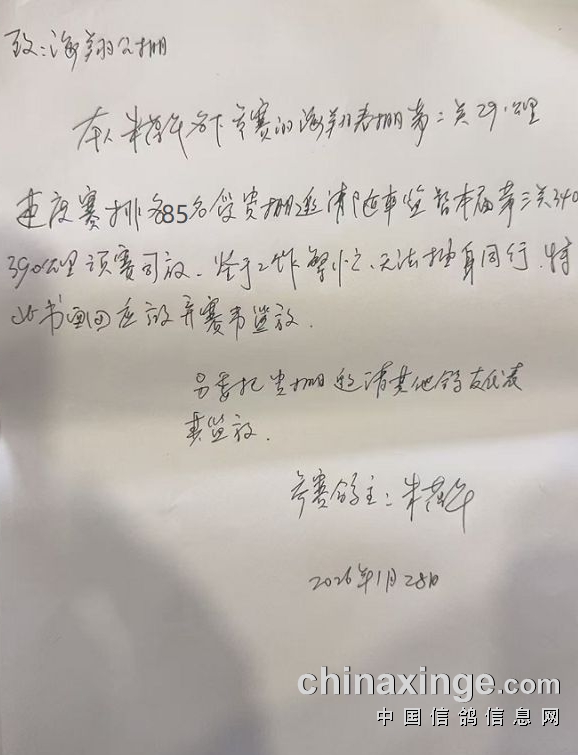 致:海翔公棚
本人朱 名下参赛的海翔春棚第二关29 公里
速度赛排名85名受贵棚邀请随车监 本届第三关340
390公里预赛司放.鉴于工作繁忙、无法抽身同行.特
此书面回应放弃赛事监放.
另委托贵棚邀请其他鸽友代
监放.
参赛鸽主:朱
2026年1月28日
chinaxinge.com
中国信鸽信息网